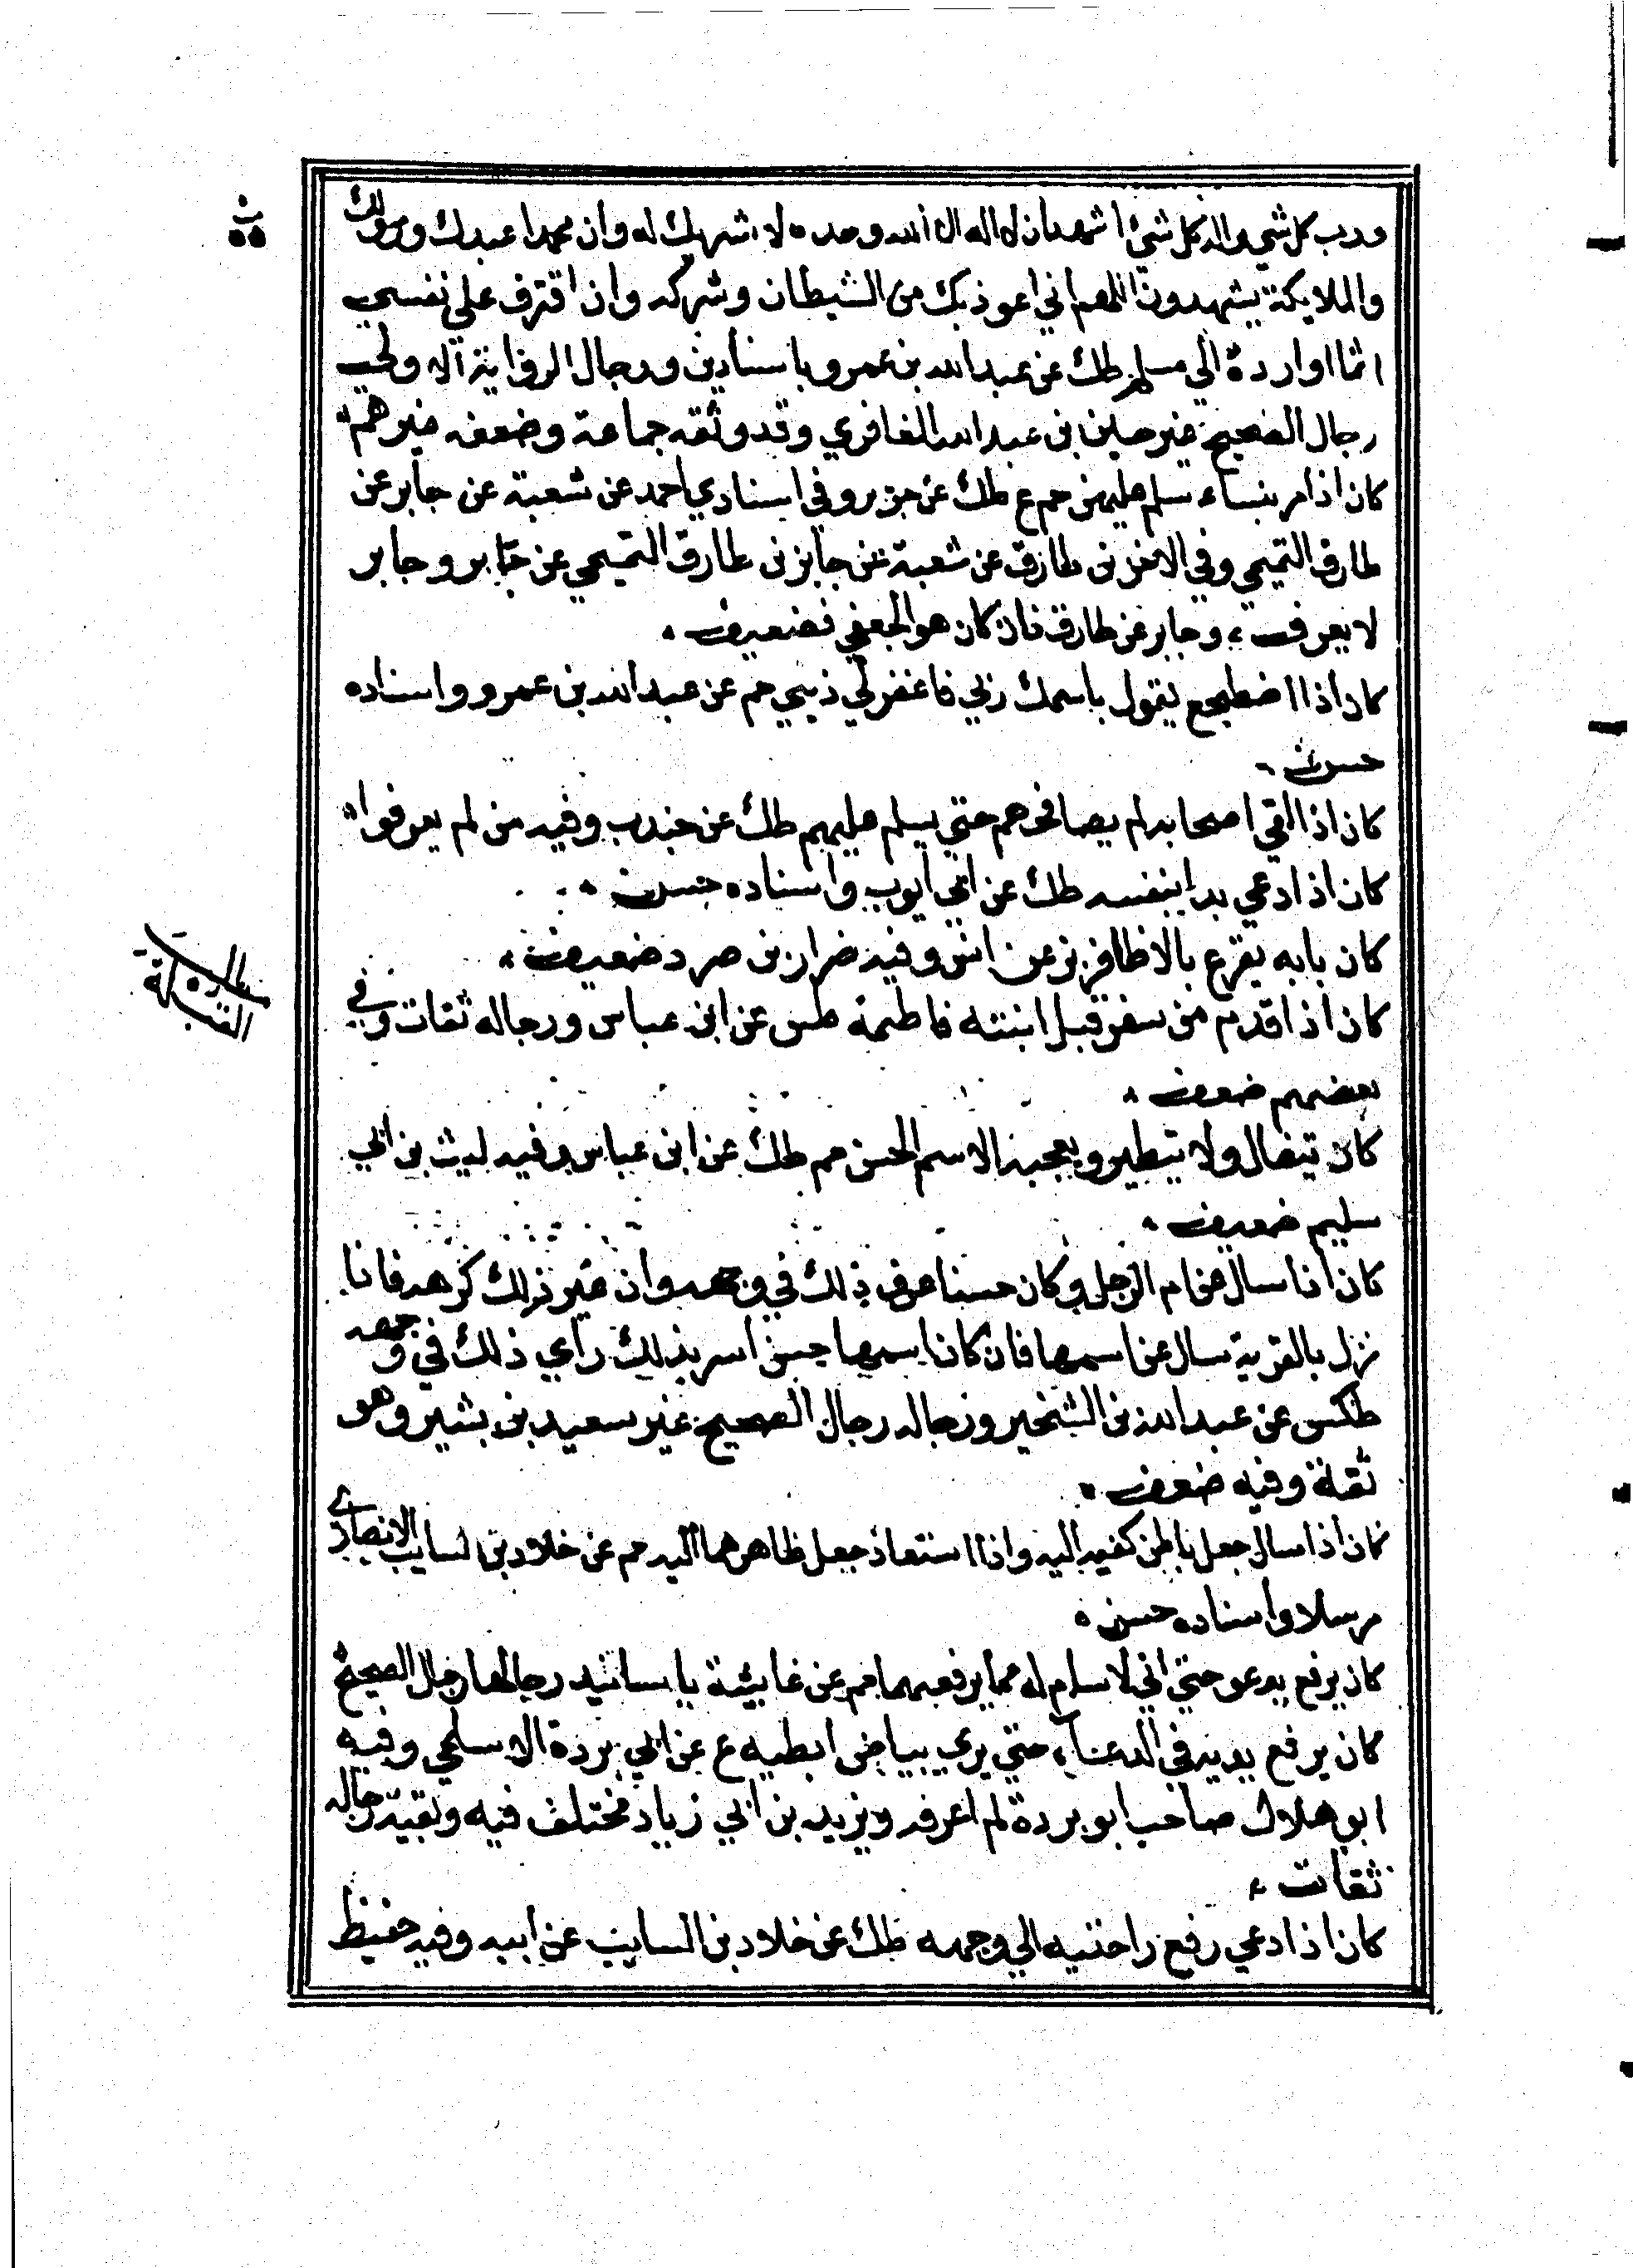 ورب كل شي واله كل شئ اشهد ان لا اله الا الله وحده لا شريك له وان محمدا عبدك ورسولك
والملايكة يشهدون اللهم اني اعوذ بك من الشيطان وشركه وان اقترف علي نفسي
اثما او ارده الي مسلم طك عن عبد الله بن عمرو باسنادين ورجال الرواية الاولي
رجال الصحيح غير حيين بن عبد الله المغافري وقد وثقه جماعة وضعفه غيرهم
كان اذا مر بنساء سلم عليهن حم ع طك عن جرير وفي اسنادي احمد عن شعبة عن جابر عن
طارق التميمي وفي الاخر بن طارق عن شعبة عن جابر بن طارق التميمي عن جابر وجابر
لا يعرف، وجابر عن طارق فان كان هو الجعفي فضعيف
كان اذا اضطجع يقول باسمك ربي فاغفر لي ذنبي حم عن عبد الله بن عمرو واسناده
حسن
كان اذا لقي اصحابه لم يصافحهم حتي يسلم عليهم طك عن جندب وفيه من لم يعرفوا
كان اذا دعي بدا بنفسه طك عن ابي ايوب واسناده حسن
كان بابه يقرع بالاظافر بز عن انس وفيه ضرار بن صرد ضعيف
كان اذا قدم من سفر قبل ابنته فاطمة طس عن ابن عباس ورجاله ثقات وفي
بعضهم ضعف
كان يتفال ولا يتطير ويعجبه الاسم الحسن حم طك عن ابن عباس وفيه ليث بن ابي
سليم ضعيف
كان اذا سال عن اسم الرجل وكان حسنا عرف ذلك في وجهه وان غير ذلك كرهه فاذا
نزل بالقرية سال عن اسمها فان كان اسمها حسن اسر بذلك راي ذلك في وجهه
طكس عن عبد الله بن الشخير ورجاله رجال الصحيح غير سعيد بن بشير وهو
ثقة وفيه ضعف
كان اذا سال جعل باطن كفيه اليه واذا استعاذ جعل ظاهرهما اليه حم عن خلاد بن السايب الانصاري
مرسلا واسناده حسن
كان يرفع يدعو حتي اني لاسام له مما يرفعهما حم عن عايشة باسانيد رجالها رجال الصحيح
كان يرفع يديه في الدعاء حتي يري بياض ابطيه ع عن ابي بردة الاسلمي وفيه
ابو هلال صاحب ابو بردة لم اعرفه ويزيد بن ابي زياد مختلف فيه وبقية رجاله
ثقات
كان اذا دعي رفع راحتيه الي وجهه طك عن خلاد بن السايب عن ابيه وفيه حفيظ